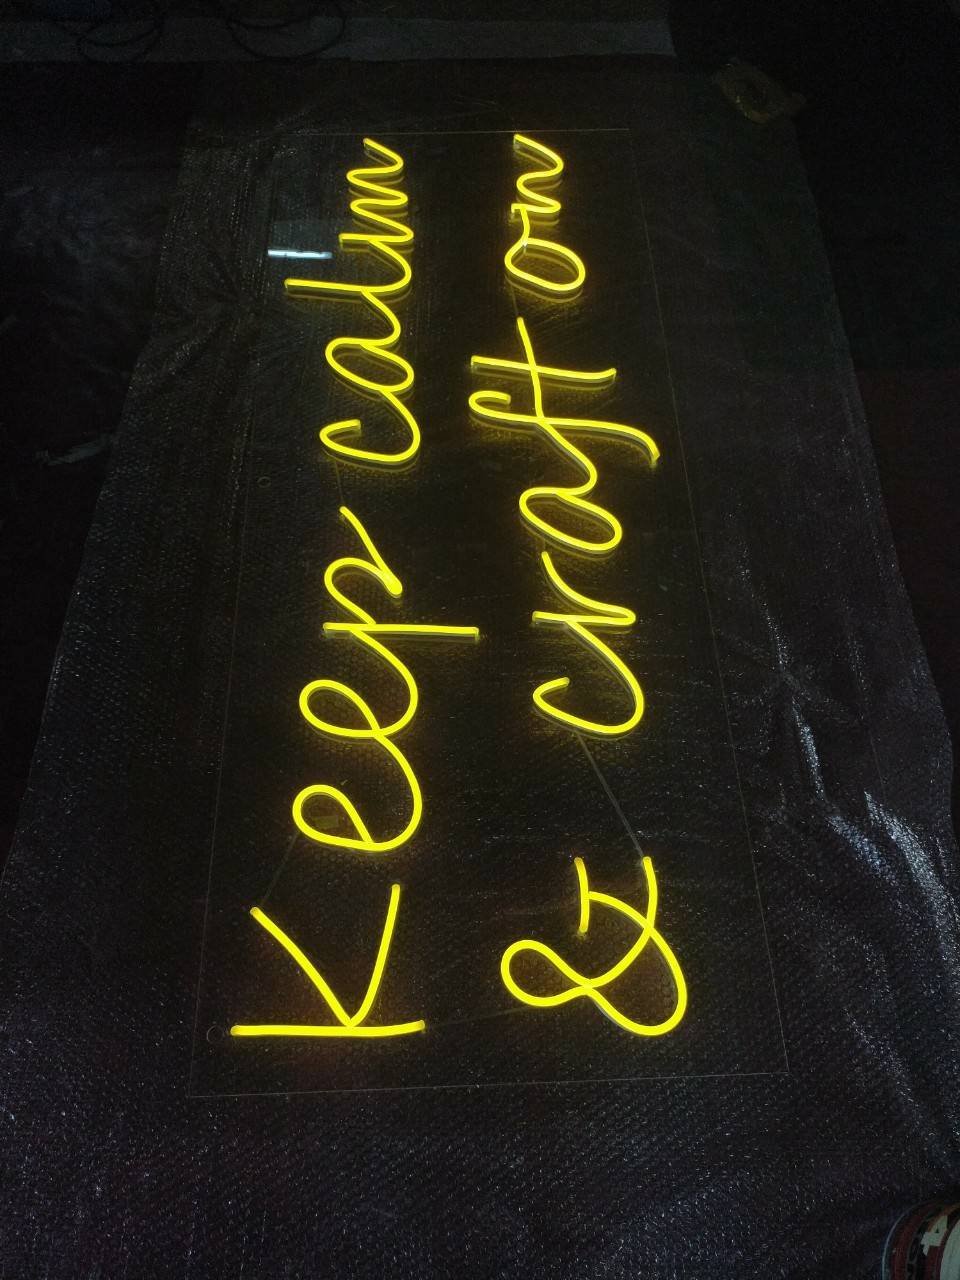 Keep calm
& craft on